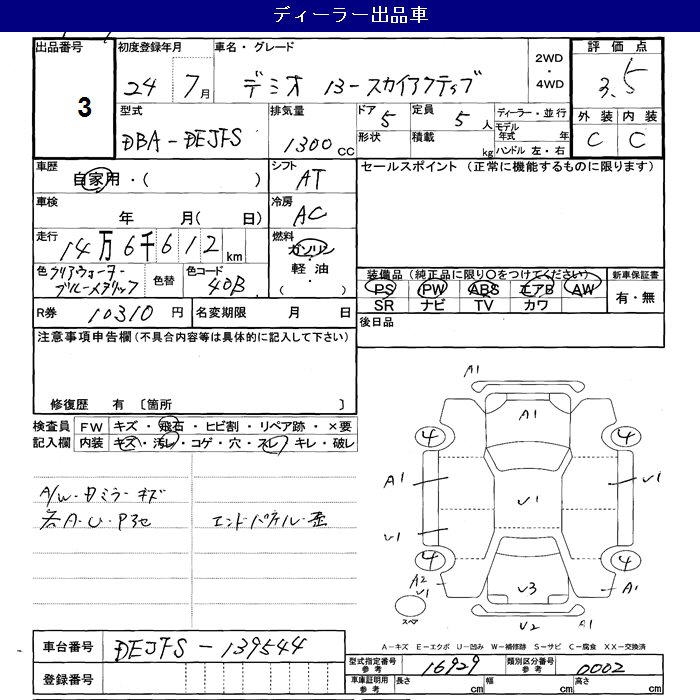 ディーラー出品車
出品番号
3
初度登録年月
24 7月
車名・グレード
デミオ 13-スカイアクティブ
2WD
・
4WD
評価点
3.5
型式
DBA-DEJFS
排気量
1300cc
ドア
5
定員
5人
形状
積載
kg
ディーラー・並行
モデル年式 年
ハンドル 左・右
外装 内装
C C
車歴
自家用・( )
シフト
AT
セールスポイント (正常に機能するものに限ります)
車検
年 月( 日)
冷房
AC
走行
14万6千612km
燃料
ガソリン
・
軽油
・
( )
色
クリアウォーターブルーメタリック
色替
色コード
40B
装備品(純正品に限り〇をつけてください)
PS PW ABS エアB AW
SR ナビ TV カワ
新車保証書
有・無
R券 10310円
名変期限 月 日
後日品
注意事項申告欄(不具合内容等は具体的に記入して下さい)
修復歴 有 〔箇所 〕
検査員記入欄
FW キズ・飛石・ヒビ割・リペア跡・×要
内装 キズ・汚レ・コゲ・穴・スレ・キレ・破レ
A/W・ミラーキズ
A・U・P
エンドパネル・歪
A1
A1
4
4
A1
V1
V1
V1
4
4
A2
V1
V3
A1
スペア
V2
A1
A-キズ E-エクボ U-凹み W-補修跡 S-サビ C-腐食 XX-交換済
車台番号
DEJFS-139544
登録番号
型式指定番号 参考
16929
類別区分番号 参考
0002
車庫証明用 参考
長さ cm
幅 cm
高さ cm